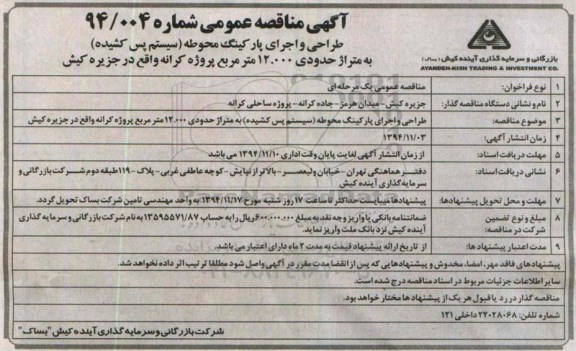 آگهی مناقصه عمومی شماره ۹۴/۰۰۴
طراحی و اجرای پارکینگ محوطه (سیستم پس کشیده)
به متراژ حدودی ۱۲.۰۰۰ متر مربع پروژه کرانه واقع در جزیره کیش
بازرگانی و سرمایه گذاری آینده کیش (بساک)
AYANDEH-KISH TRADING & INVESTMENT CO.
۱ نوع فراخوان: مناقصه عمومی یک مرحله ای
۲ نام و نشانی دستگاه مناقصه گذار: جزیره کیش - میدان هرمز - جاده کرانه - پروژه ساحلی کرانه
۳ موضوع مناقصه: طراحی و اجرای پارکینگ محوطه (سیستم پس کشیده) به متراژ حدودی ۱۲.۰۰۰ متر مربع پروژه کرانه واقع در جزیره کیش
۴ زمان انتشار آگهی: ۱۳۹۴/۱۱/۰۳
۵ مهلت دریافت اسناد: از زمان انتشار آگهی لغایت پایان وقت اداری ۱۳۹۴/۱۱/۱۰ می باشد
۶ نشانی دریافت اسناد: دفتر هماهنگی تهران - خیابان ولیعصر - بالاتر از نیایش - کوچه عاطفی غربی - پلاک ۱۱۹ طبقه دوم شرکت بازرگانی و
سرمایه گذاری آینده کیش
۷ مهلت و محل تحویل پیشنهادها: پیشنهادها میبایست حداکثر تا ساعت ۱۷ روز شنبه مورخ ۱۳۹۴/۱۱/۱۷ به واحد مهندسی تامین شرکت بساک تحویل گردد.
۸ مبلغ و نوع تضمین شرکت در مناقصه: ضمانتنامه بانکی یا واریز وجه نقد به مبلغ ۶۰۰.۰۰۰.۰۰۰ ریال با به حساب ۱۳۵۹۵۵۷۱/۸۷ به نام شرکت بازرگانی و سرمایه گذاری
آینده کیش نزد بانک ملت واریز نماید.
۹ مدت اعتبار پیشنهادها: از تاریخ ارائه پیشنهاد قیمت به مدت ۲ ماه دارای اعتبار می باشد.
پیشنهادهای فاقد مهر، امضا، مخدوش و پیشنهادهایی که پس از انقضا مدت مقرر در آگهی واصل شود مطلقا ترتیب اثر داده نخواهد شد.
سایر اطلاعات جزئیات مربوط در اسناد مناقصه درج شده است.
مناقصه گذار در رد یا قبول هر یک از پیشنهاد ها مختار خواهد بود.
شماره تلفن: ۲۲۰۲۸۰۶۸ داخلی ۱۲۱
شرکت بازرگانی و سرمایه گذاری آینده کیش "بساک"